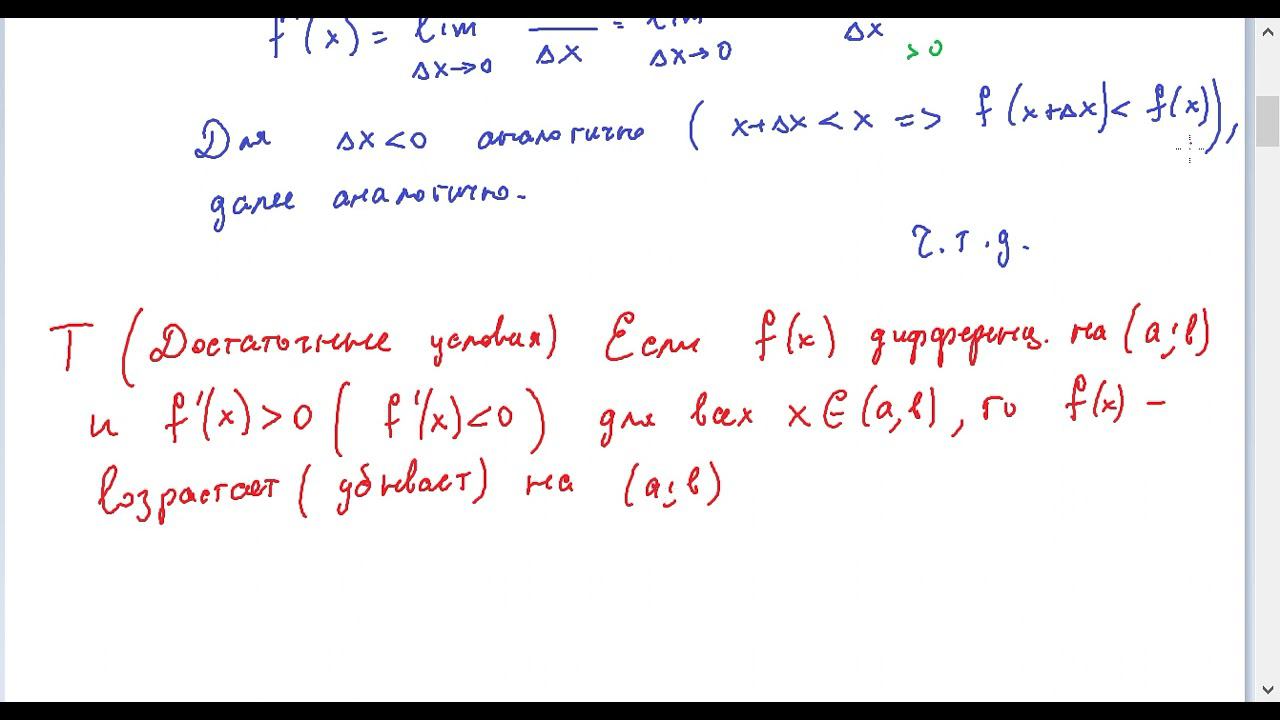 f'(x) = lim Δx→0 Δx = lim Δx→0 Δx > 0
Для Δx < 0 аналогично ( x+Δx < x => f(x+Δx) < f(x) ),
далее аналогично.
Ч.т.д.
Т (Достаточные условия) Если f(x) дифференц. на (a;b)
и f'(x)>0 ( f'(x)<0 ) для всех x∈(a,b), то f(x) –
возрастает (убывает) на (a;b)